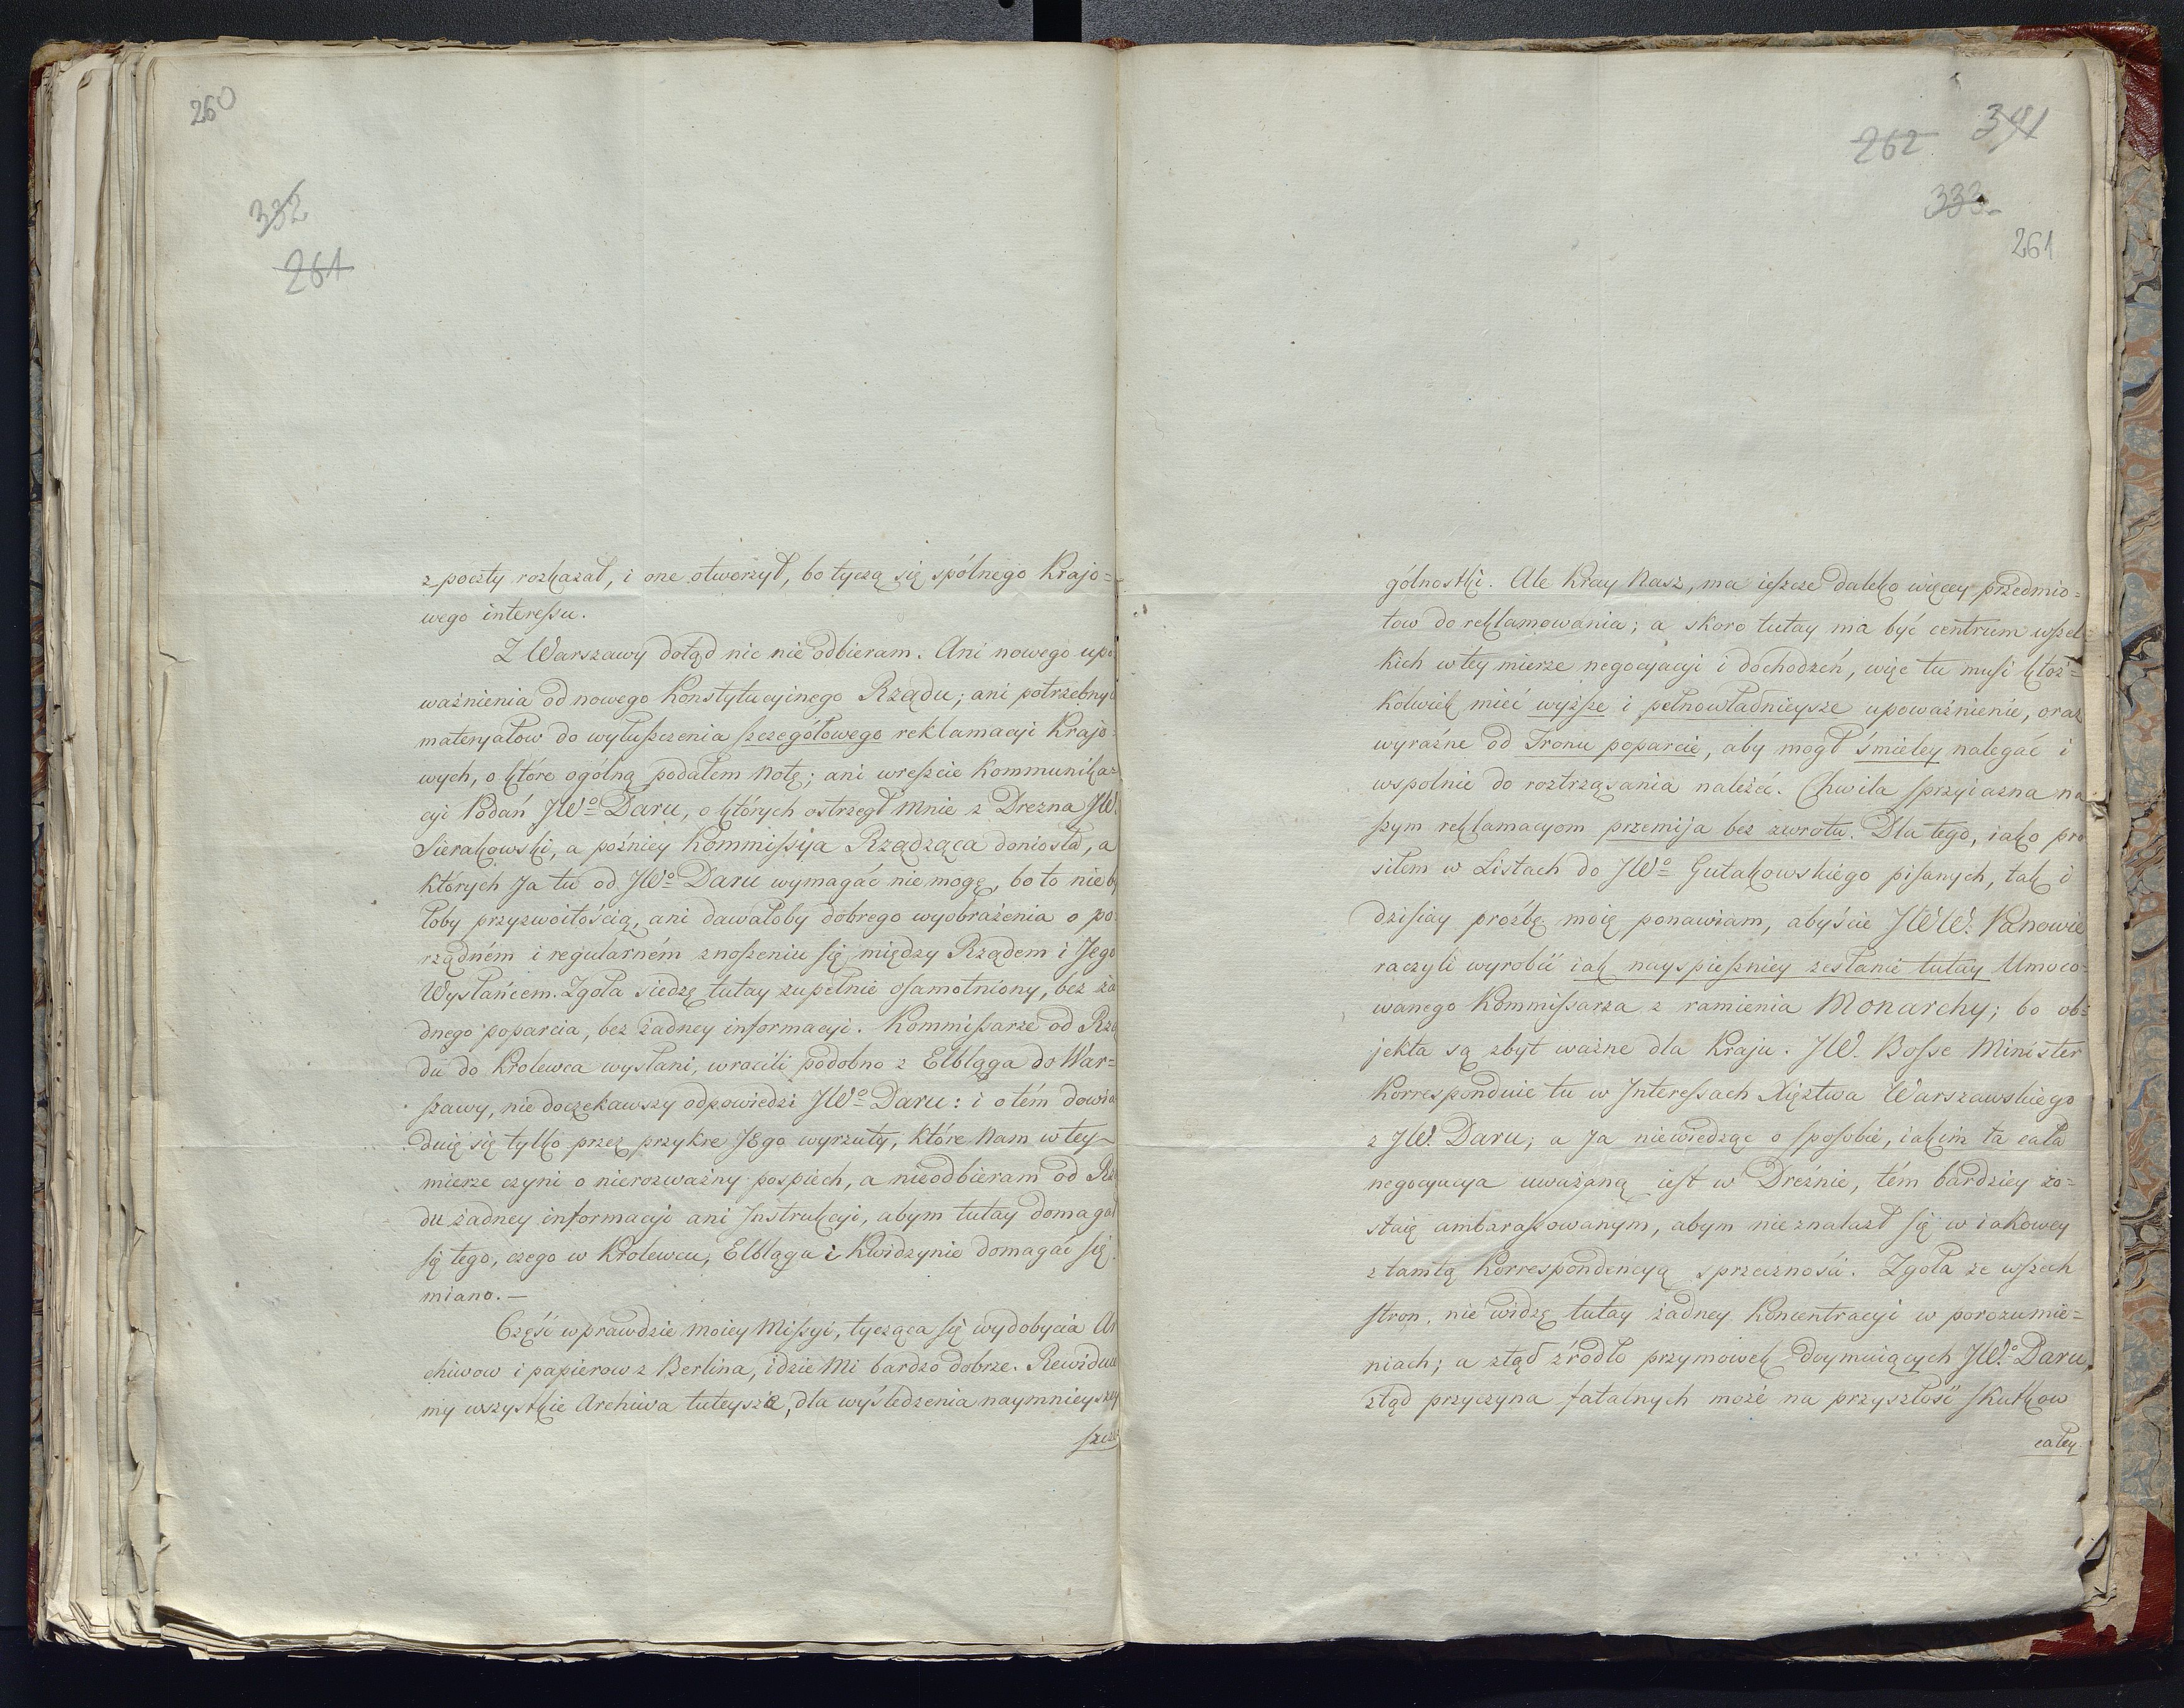 260
332
261
z poczty rozkazał, i one otworzył, bo tyczą się spólnego Krajo=
wego interessu.
Z Warszawy dotąd nic nie odbieram. Ani nowego upo
ważnienia od nowego Konstytucyinego Rządu; ani potrzebny
materyałow do wyłuszczenia szczegółowego reklamacyi Krajo
wych, o które ogólną podałem Notę; ani wreszcie Kommunika=
cyi Podań JWo Daru, o których ostrzegł mnie z Drezna JW
Sierakowski, a pożniey Kommissya Rządząca doniosła, a
których Ja tu od JWo Daru wymagać nie mogę, bo to nie by
łoby przyzwoitością, ani dawałoby dobrego wyobrażenia o po
rządném i regularném znoszeniu się między Rządem i Jego
Wysłańcem. Zgoła siedzę tutay zupełnie osamotniony, bez ża
dnego poparcia, bez żadney informacyi. Kommissarze od Rzą
du do Krolewca wysłani, wrocili podobno z Elbląga do War=
szawy, nie doczekawszy odpowiedzi JWo Daru: i o tém dowia
duię się tylko przez przykre Jego wyrzuty, które Nam w tey
mierze czyni o nierozważny pospiech, a nieodbieram od Rzą
du żadney informacyi ani Jnstrukcyi, abym tutay domagał
się tego, czego w Krolewcu, Elblągu i Kwidzynie domagać się
miano.—
Część wprawdzie moiey Missyi, tycząca się wydobycia Ar
chiwow i papierow z Berlina, idzie Mi bardzo dobrze. Rewidue
my wszystkie Archiwa tuteysze, dla wyśledzenia naymnieyszey
szcze
262 341
333
261
gólnostki. Ale Kray Nasz, ma ieszcze daleko więcey przedmio=
tow do reklamowania; a skoro tutay ma być centrum wszel=
kich w tey mierze negocyacyi i dochodzeń, więc tu musi ktoś=
kolwiek mieć wyższe i pełnowładnieysze upoważnienie, oraz
wyraźne od Tronu poparcie, aby mogł śmieley nalegać i
wspolnie do roztrząsania należeć. Chwila sprzyiazna na
szym reklamacyom przemija bez zwrotu. Dla tego, iako pro
siłem w Listach do JWo Gutakowskiego pisanych, tak i
dzisiay prozbę moię ponawiam, abyście JWW. Panowie
raczyli wyrobić iak nayspieszniey zesłanie tutay Umoco=
wanego Kommissarza z ramienia Monarchy; bo ob=
jekta są zbyt ważne dla Kraju. JW. Bosse Minister
Korresponduie tu w Jnteressach Xięztwa Warszawskiego
z JW. Daru; a Ja niewiedząc o sposobie, iakim ta cała
negocyacya uważaną iest w Dreźnie, tém bardziey zo=
staię ambarassowanym, abym nieznalazł się w iakowey
z tamtą Korrespondencyą sprzeczności. Zgoła ze wszech
stron, nie widzę tutay żadney Koncentracyi w porozumie=
niach; a ztąd źrodło przymowek doymuiących JWo Daru,
ztąd przyczyna fatalnych może na przyszłość skutkow
całey